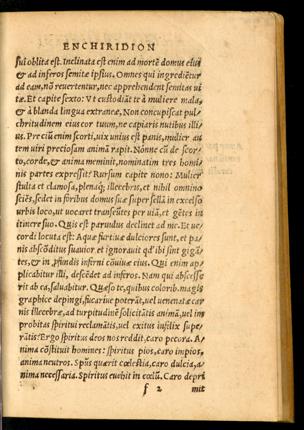 ENCHIRIDION
sui oblita est. Inclinata est enim ad mortē domus eius
& ad inferos semitæ ipsius. Omnes qui ingrediētur
ad eam, nō reuertentur, nec apprehendent semitas ui
tæ. Et capite sexto: Vt custodiāt te à muliere mala,
& à blanda lingua extraneæ, Non concupiscat pul
chritudinem eius cor tuum, ne capiaris nutibus illi
us. Preciū enim scorti, uix unius est panis, mulier au
tem uiri preciosam animā rapit. Nonne cū de scor-
to, corde, & anima meminit, nominatim tres homi
nis partes expressit? Rursum capite nono: Mulier
stulta et clamosa, plenaq; illecebris, et nihil omnino
sciēs, sedet in foribus domus suæ super sellā in excelso
urbis loco, ut uocaret transeūtes per uiā, et gētes in
itinere suo. Quis est paruulus declinet ad me. Et ue
cordi locuta est: Aquæ furtiuæ dulciores sunt, et pa
nis abscōditus suauior et ignorauit qd' ibi sint gigā
tes, & in profundis inferni cōuiuæ eius. Qui enim ap
plicabitur illi, descēdet ad inferos. Nam qui abscesse
rit ab ea, saluabitur. Quæso te, quibus colorib. magis
graphice depingi, fucariue poterāt, uel uenenatæ car
nis illecebræ, ad turpitudinē solicitātis animā, uel im
probitas spiritui reclamātis, uel exitus infœlix supe/
ratis? Ergo spiritus deos nos reddit, caro pecora. A
nima cōstituit homines: spiritus pios, caro impios,
anima neutros. Spūs quærit cœlestia, caro dulcia, a-
nima necessaria. Spiritus euehit in cœlū. Caro depri
f 2 mit